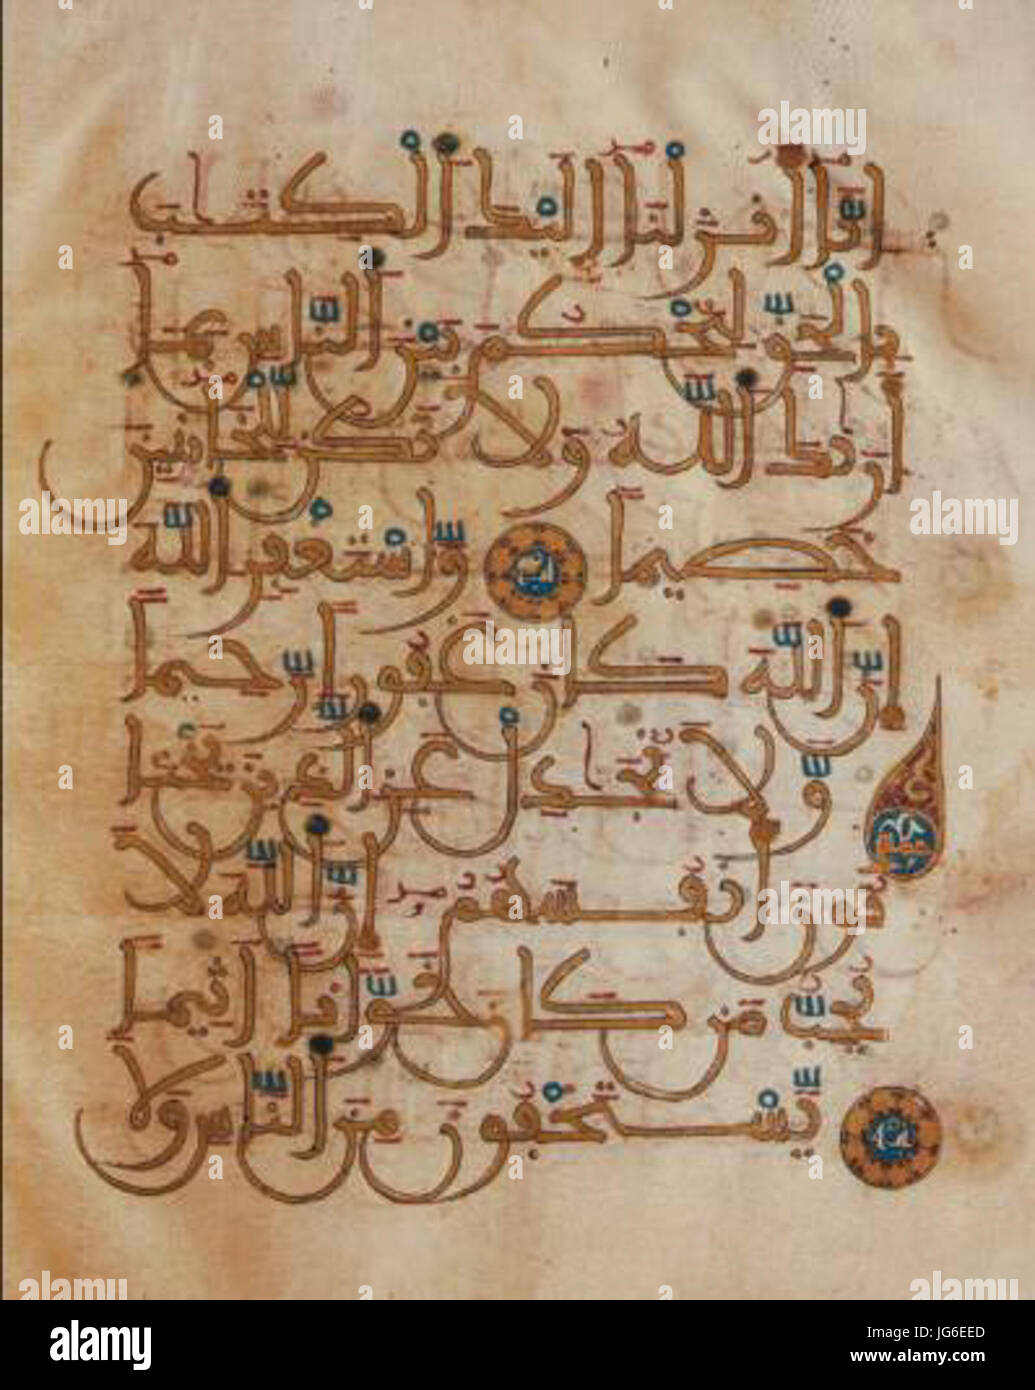 إِنَّا أَنزَلْنَا إِلَيْكَ الْكِتَٰبَ
بِالْحَقِّ لِتَحْكُمَ بَيْنَ النَّاسِ بِمَا
أَرَيٰكَ اللَّهُ وَلَا تَكُن لِّلْخَائِنِينَ
خَصِيمًا وَاسْتَغْفِرِ اللَّهَ
إِنَّ اللَّهَ كَانَ غَفُورًا رَّحِيمًا
وَلَا تُجَٰدِلْ عَنِ الَّذِينَ يَخْتَا
نُونَ أَنفُسَهُمْ إِنَّ اللَّهَ لَا
يُحِبُّ مَن كَانَ خَوَّانًا أَثِيمًا
يَسْتَخْفُونَ مِنَ النَّاسِ وَلَا
alamy
JG6EED
www.alamy.com